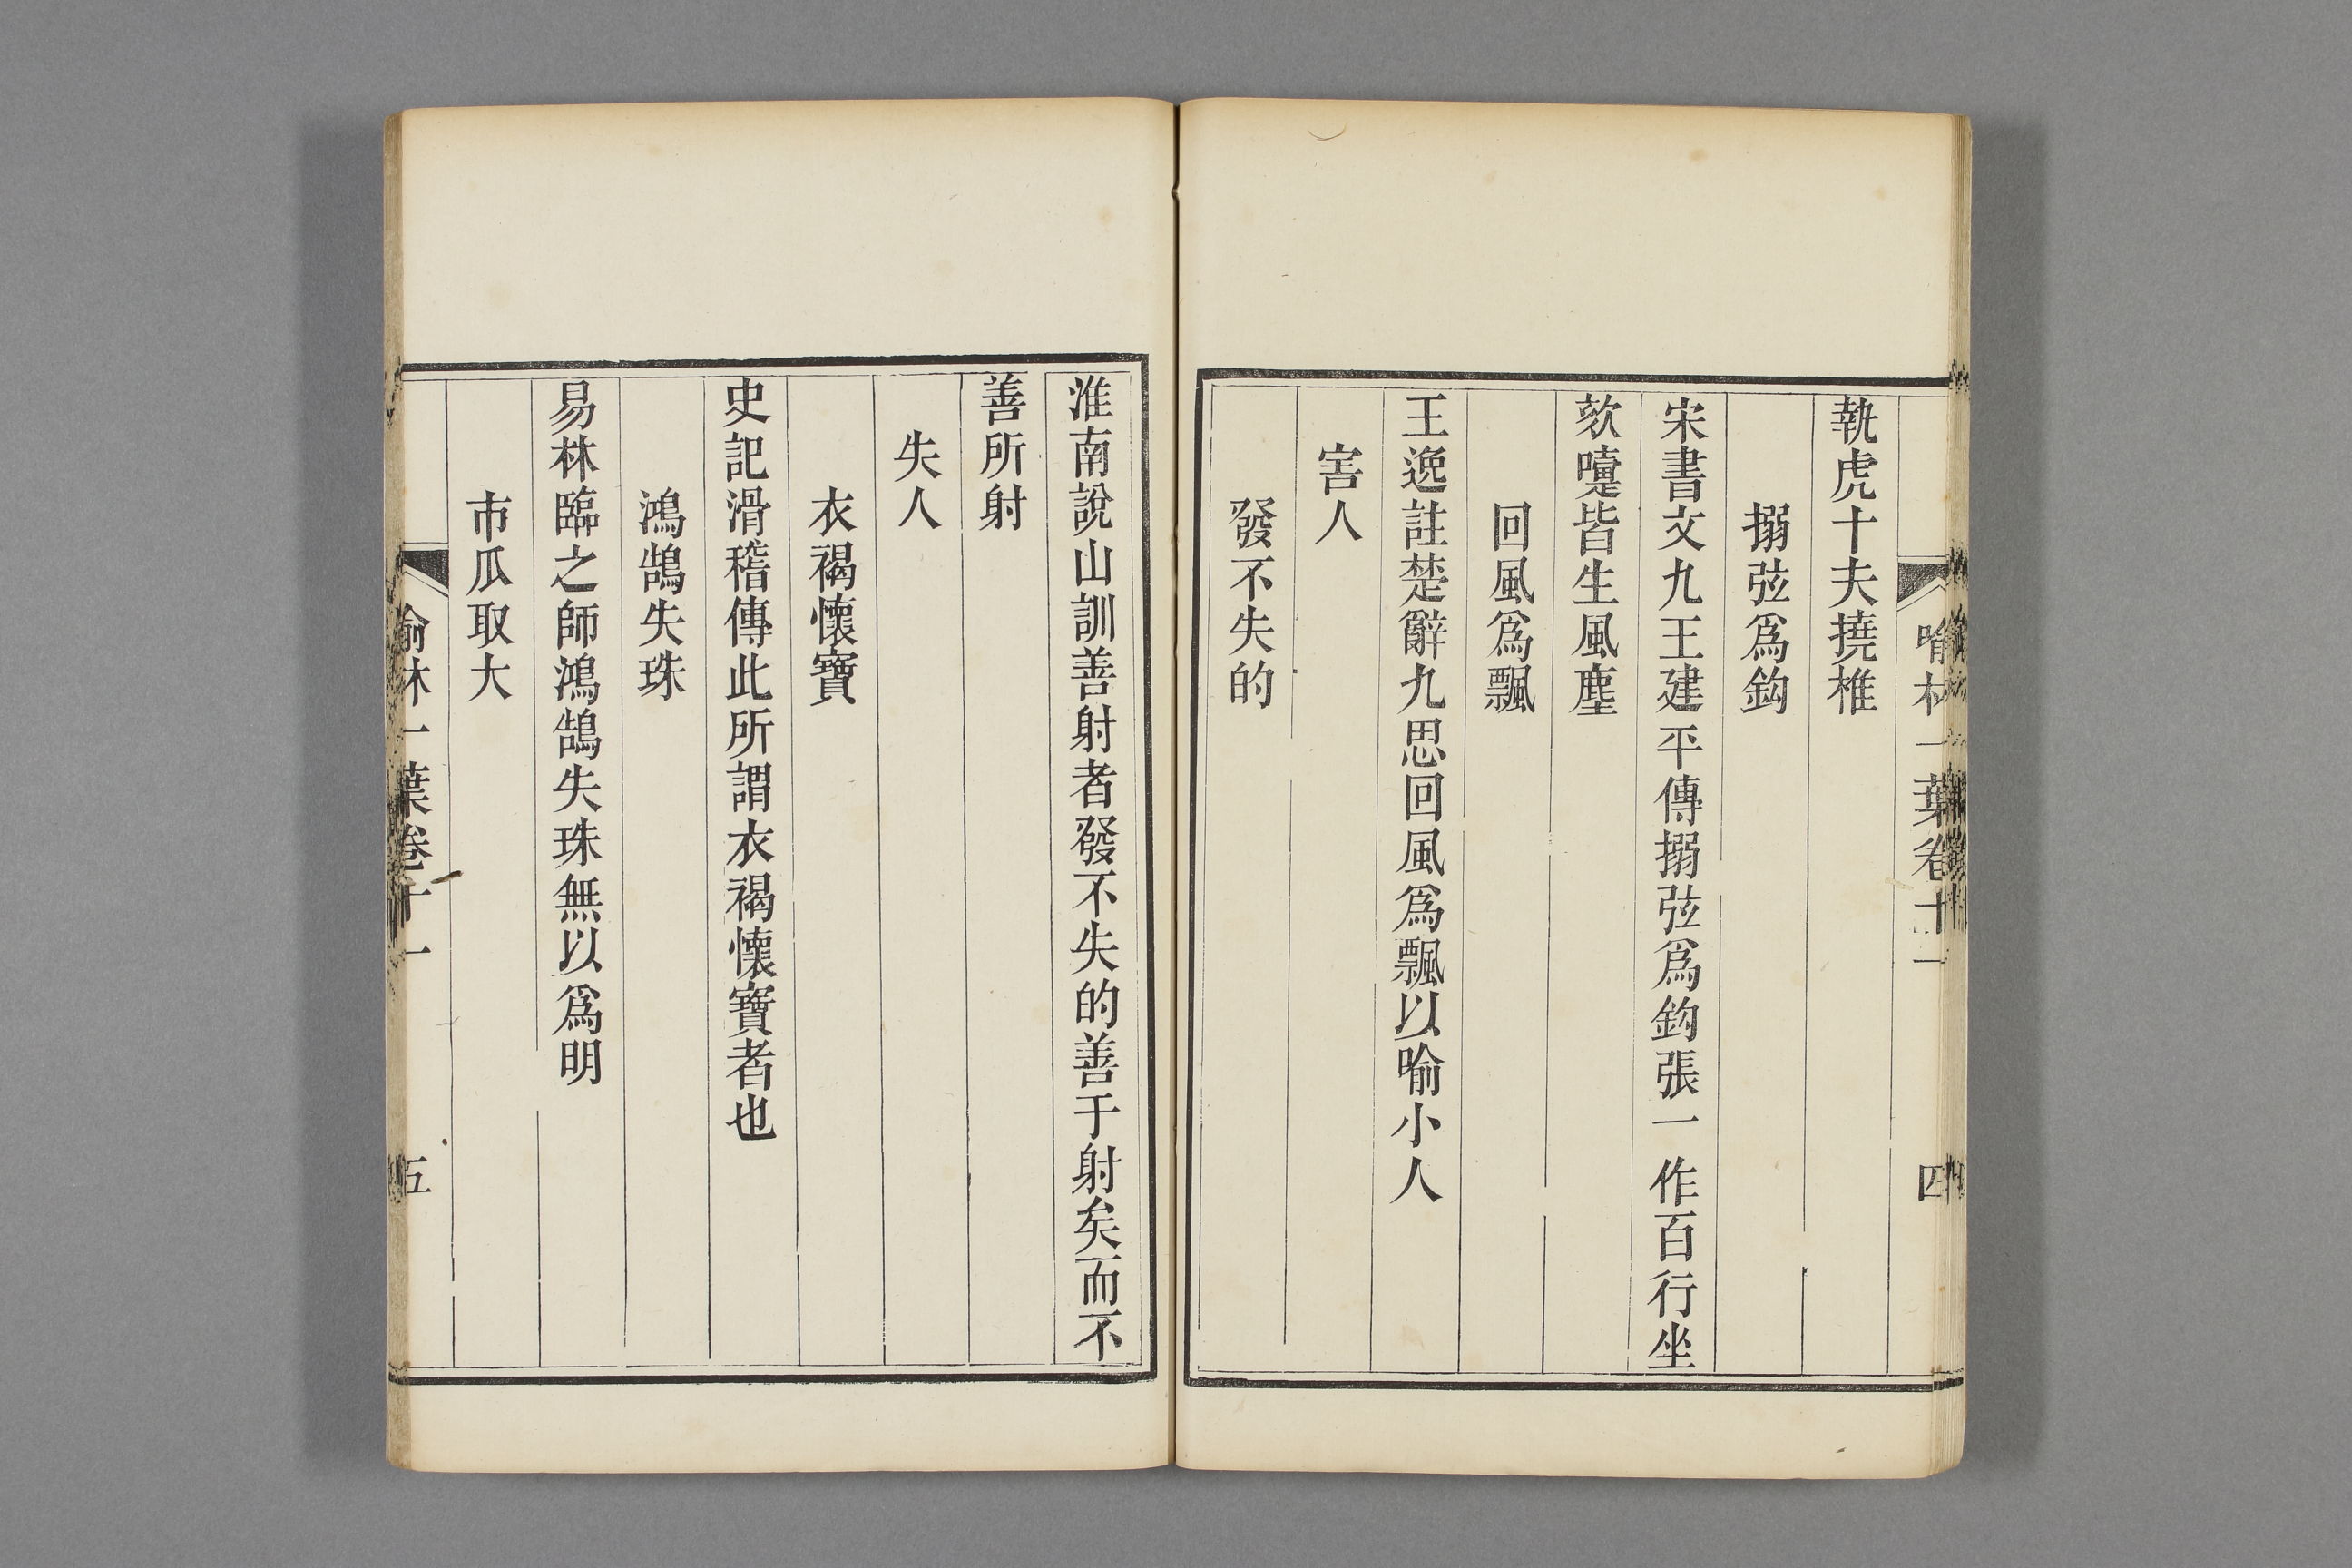 喻林一葉卷十一
四
執虎十夫撓椎
搦弦爲鈎
宋書文九王建平傳搦弦爲鈎張一作百行坐
欬嚏皆生風塵
回風爲飄
王逸註楚辭九思回風爲飄以喻小人
害人
發不失的
淮南說山訓善射者發不失的善于射矣而不
善所射
失人
衣褐懷寶
史記滑稽傳此所謂衣褐懷寶者也
鴻鵠失珠
易林臨之師鴻鵠失珠無以爲明
市瓜取大
喻林一葉卷十一
五